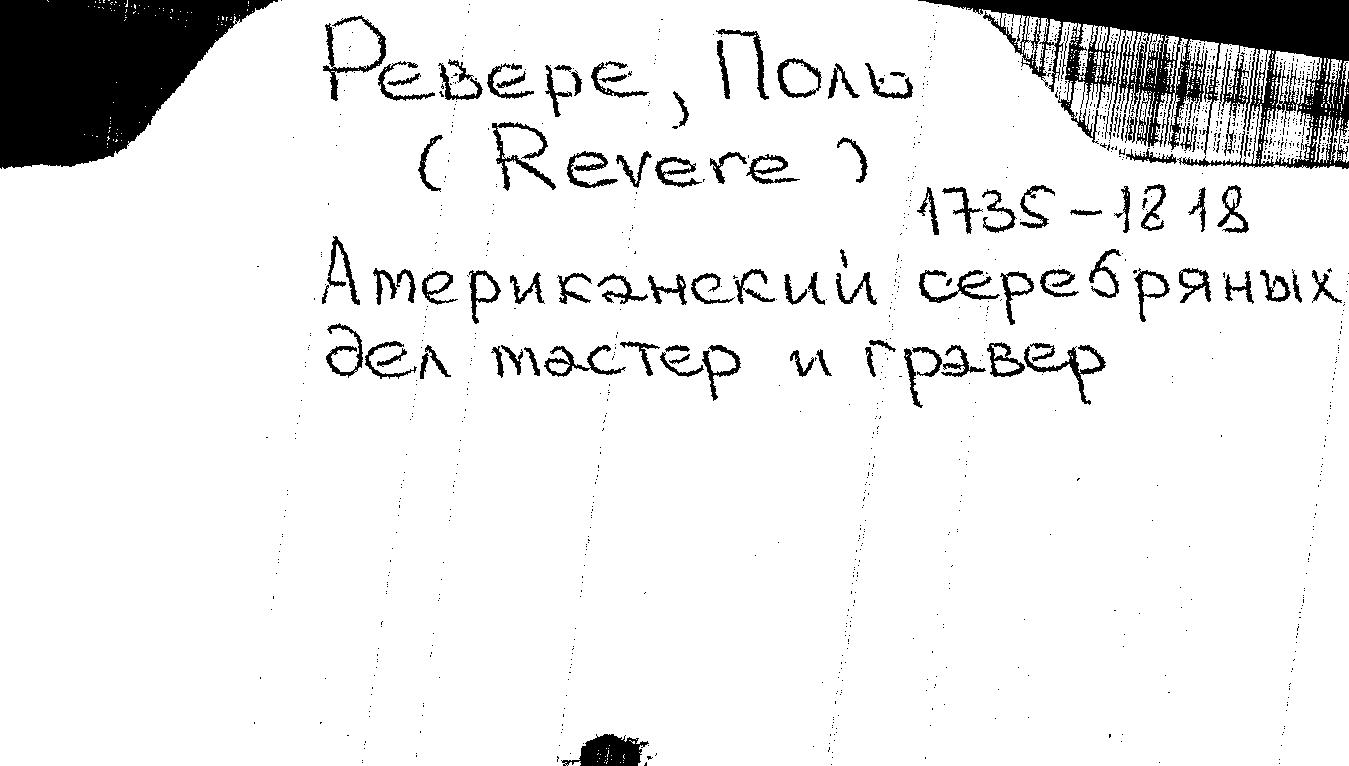 Ревере, Поль
(Revere)
1735-1818
Американский серебряных
дел мастер и гравер